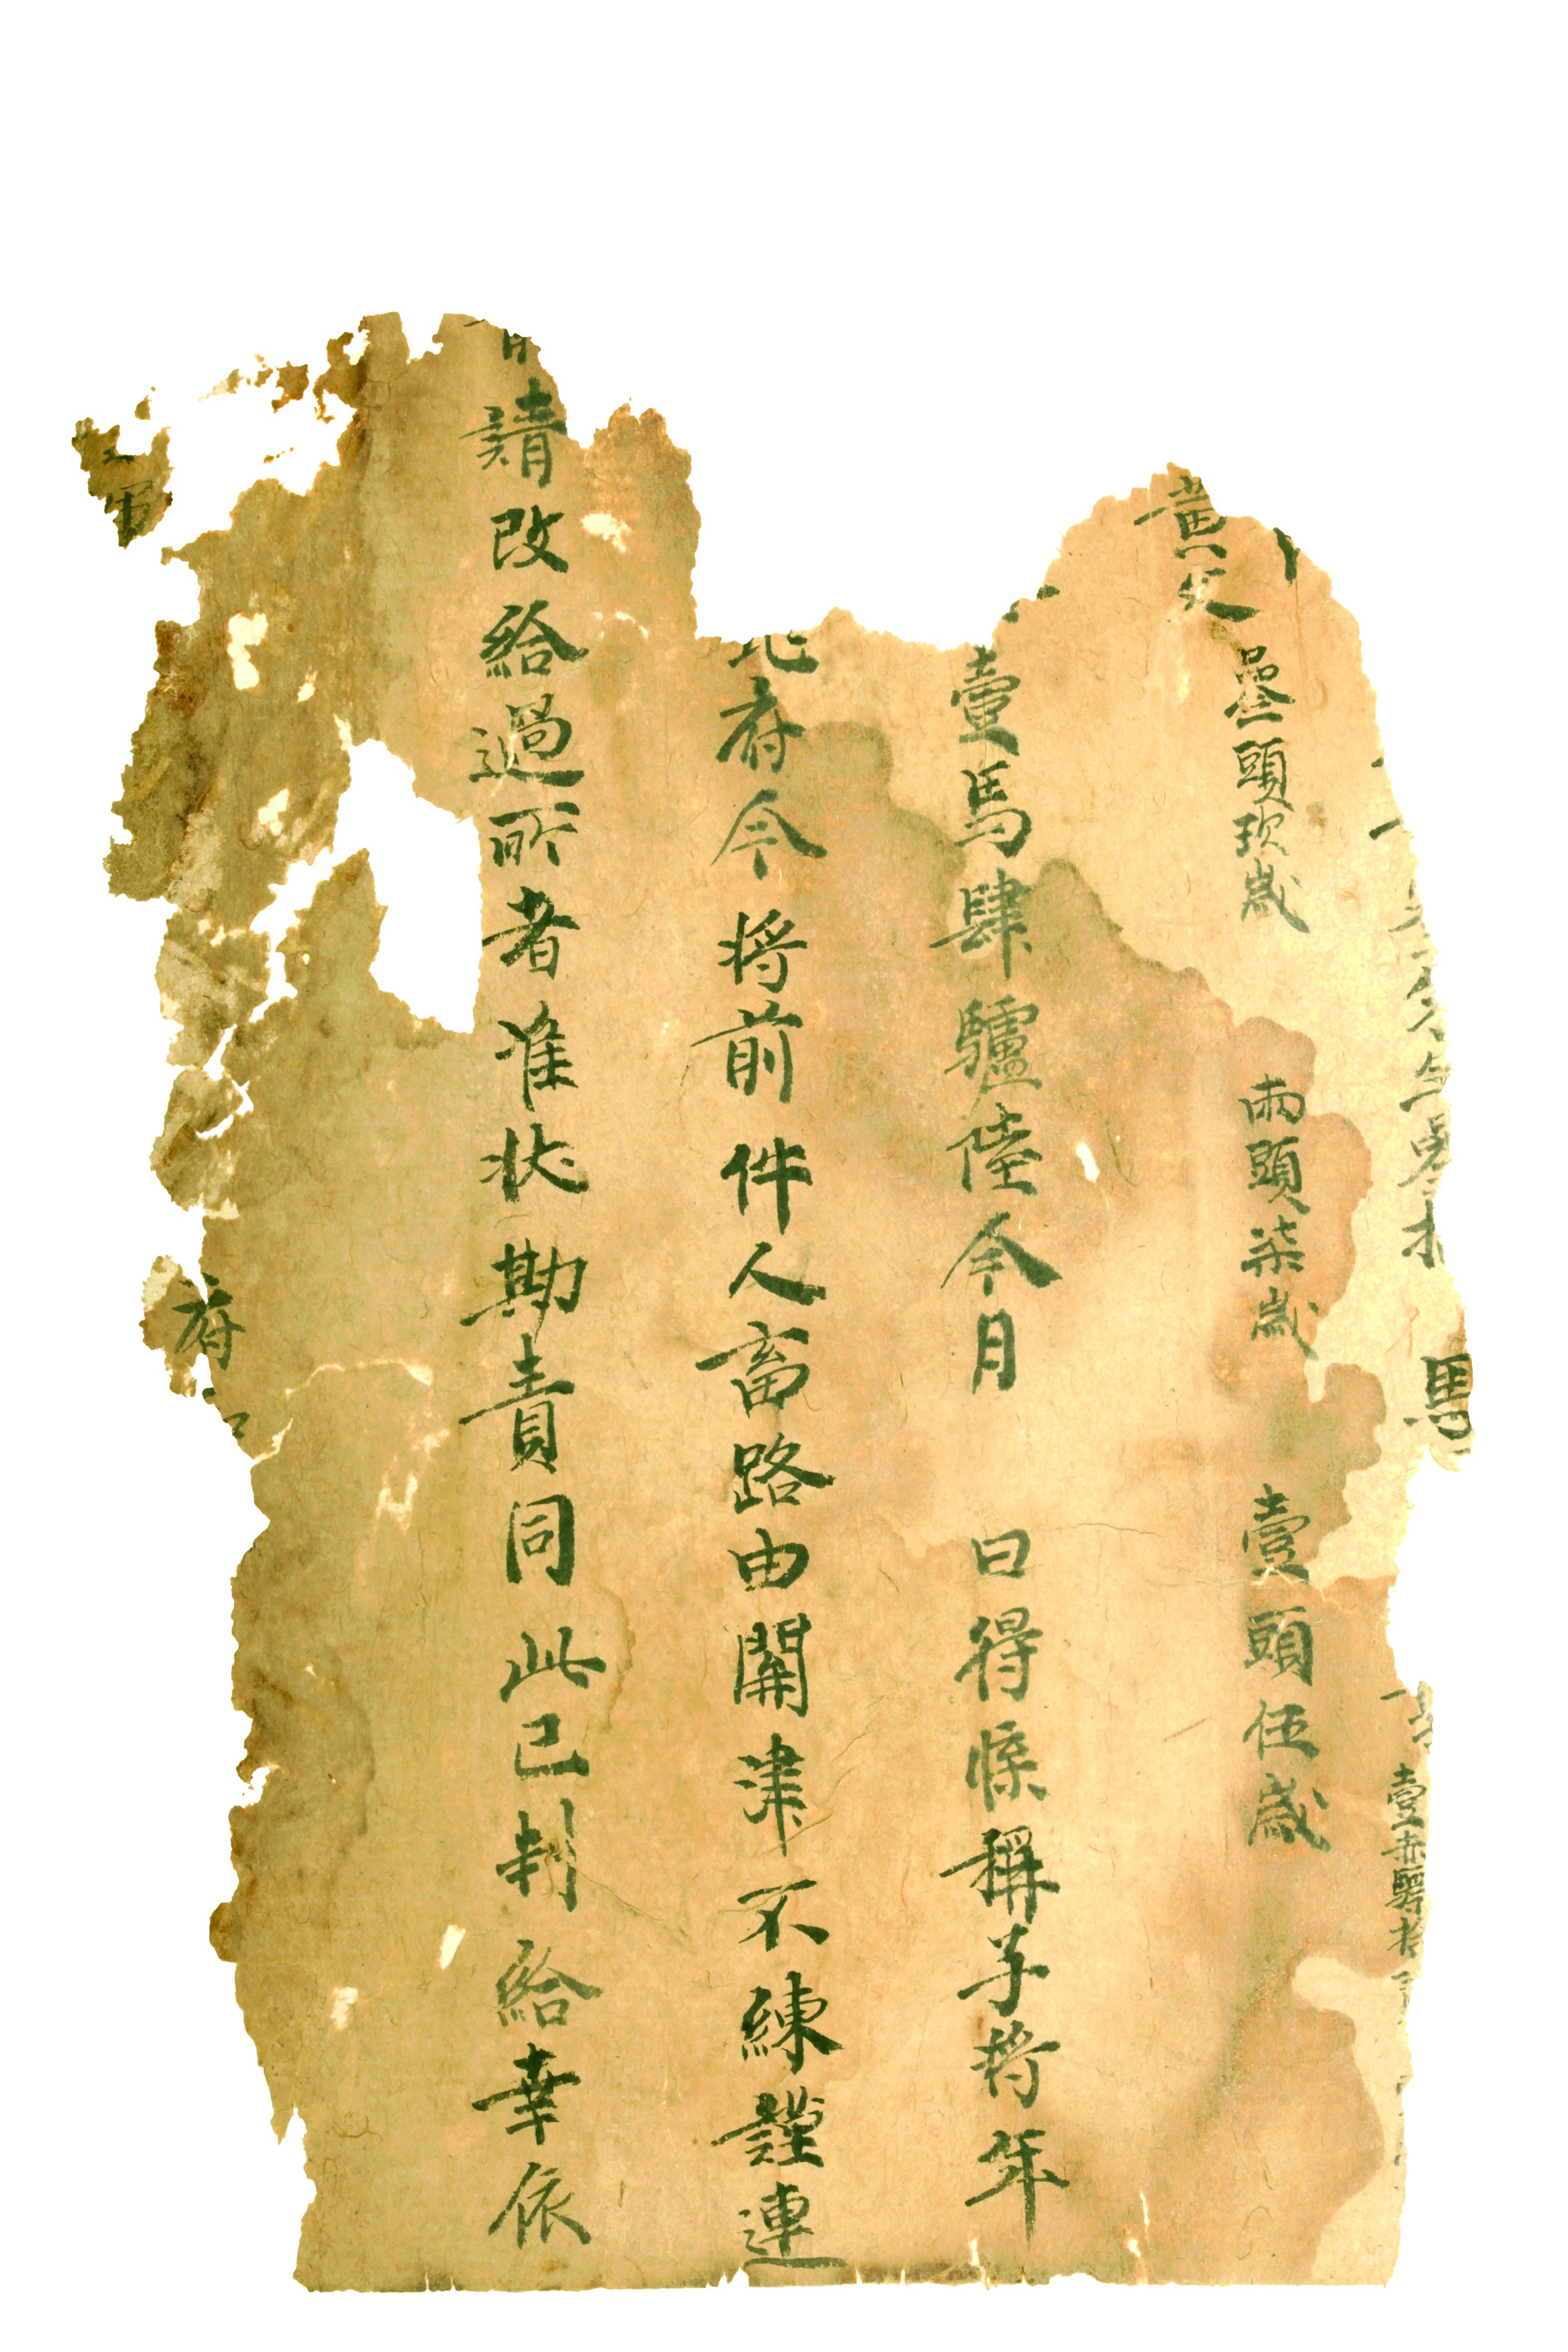 年參拾 馬 壹赤驃拾
黃父 叄頭玖歲 兩頭柒歲 壹頭伍歲
壹馬肆驢陸今月 日得牒稱子將年
北府今將前件人畜路由關津不練謹連
請改給過所者准狀勘責同此已判給幸依
府
軍